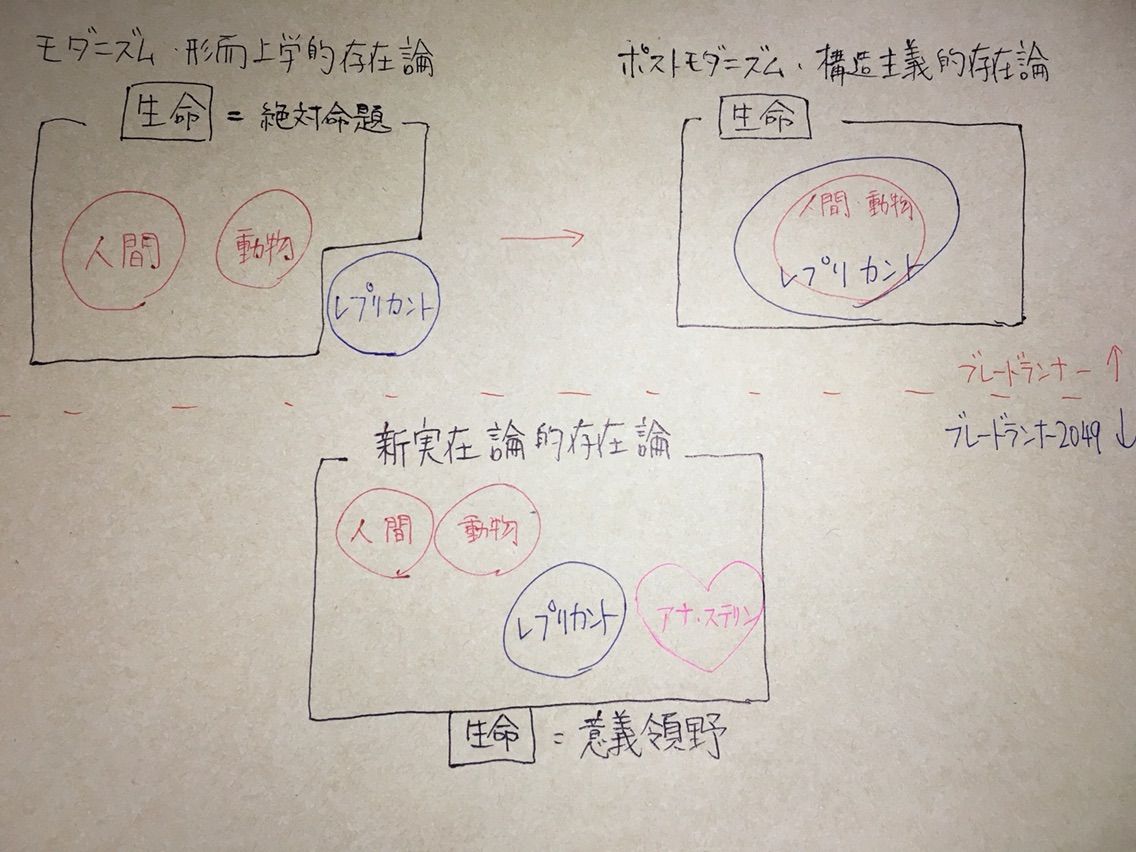 モダニズム・形而上学的存在論
生命 = 絶対命題
人間
動物
レプリカント
ポストモダニズム・構造主義的存在論
生命
人間・動物
レプリカント
ブレードランナー↑
ブレードランナー2049↓
新実在論的存在論
人間
動物
レプリカント
アナ・ステリン
生命 = 意義領野